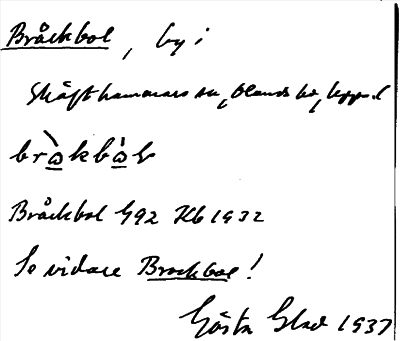 Bråckbol, by i
Skäfthammars sn, Olands hd, Uppsal
bråkbål
Bråckbol G92 Kb 1932
Se vidare Brockbol!
Gösta Glad 1937